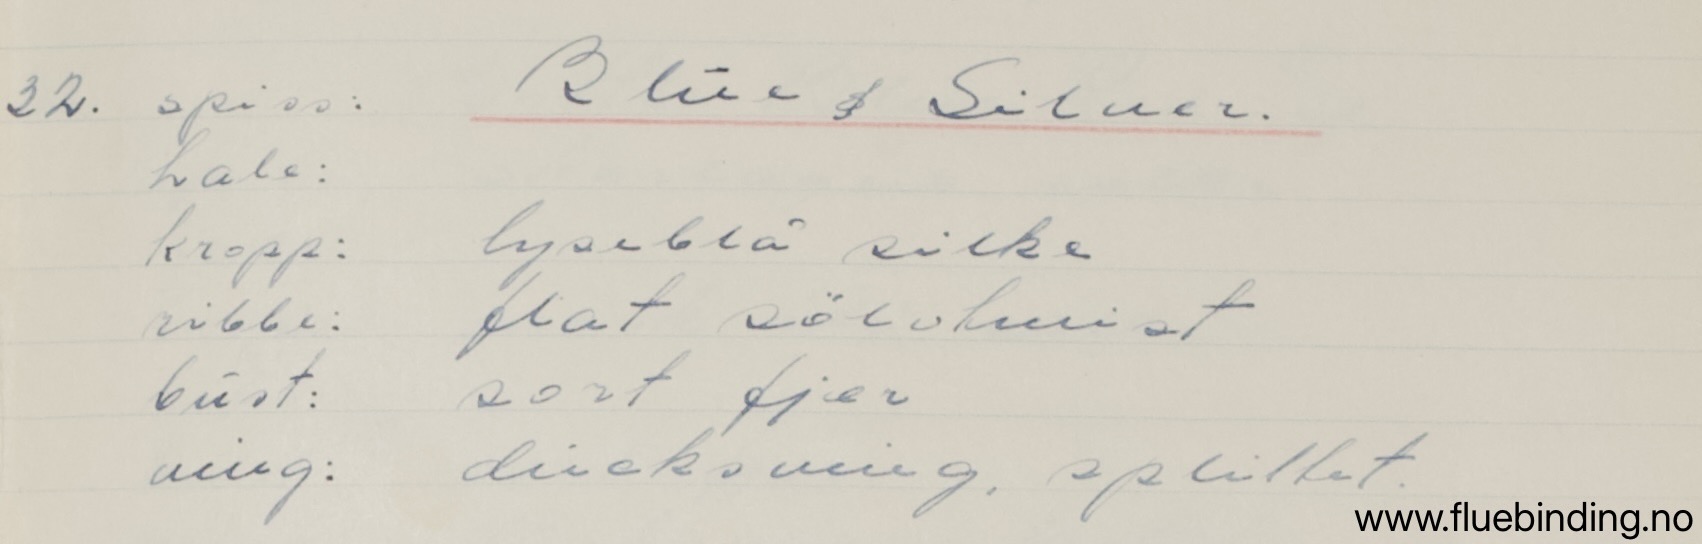 32. spiss: Blue & Silver.
hale:
kropp: lyseblå silke
ribbe: flat sölvtwist
bust: sort fjær
ving: ducksving, splittet.
www.fluebinding.no